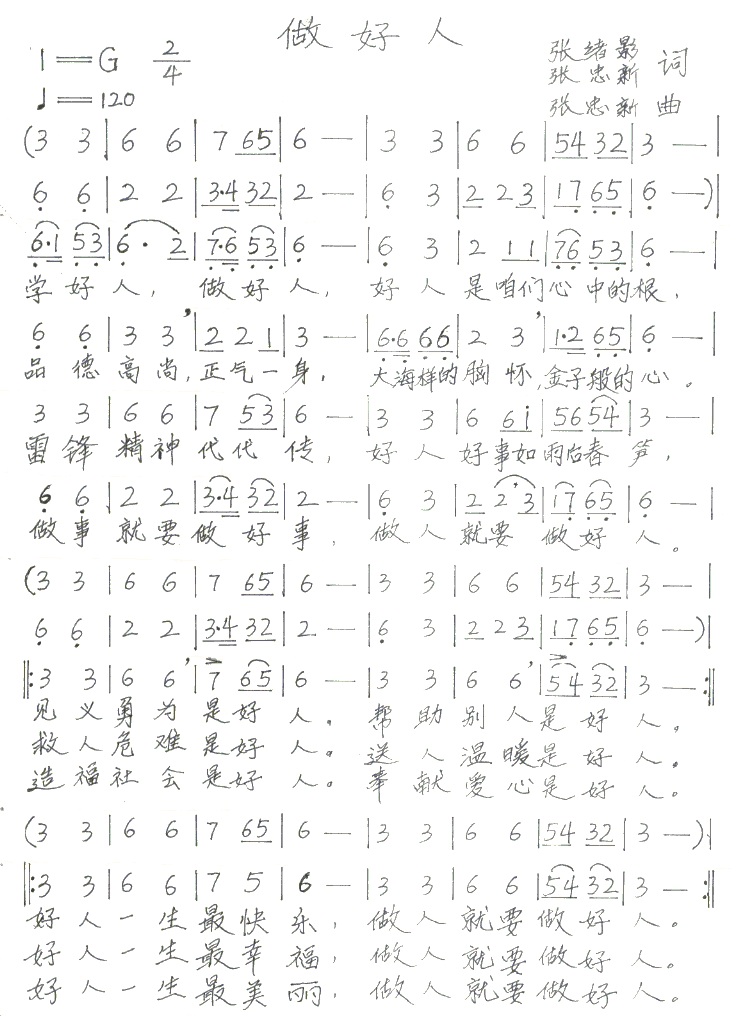 做好人
1=G 2/4
♩=120
张绪影
张忠新 词
张忠新 曲
(3 3 | 6 6 | 7 65 | 6 — | 3 3 | 6 6 | 54 32 | 3 — |
6 6 | 2 2 | 3·4 32 | 2 — | 6 3 | 2 23 | 17 65 | 6 —) |
6·1 53 | 6· 2 | 7·6 53 | 6 — | 6 3 | 2 11 | 76 53 | 6 — |
学好人，做好人，好人是咱们心中的根，
6 6 | 3 3’ | 2 2 1 | 3 — | 6·6 66 | 2 3’ | 1·2 65 | 6 — |
品德高尚，正气一身，大海样的胸怀，金子般的心。
3 3 | 6 6 | 7 53 | 6 — | 3 3 | 6 6i | 56 54 | 3 — |
雷锋精神代代传，好人好事如雨后春笋，
6 6 | 2 2 | 3·4 32 | 2 — | 6 3 | 2 2’3 | 17 65 | 6 — |
做事就要做好事，做人就要做好人。
(3 3 | 6 6 | 7 65 | 6 — | 3 3 | 6 6 | 54 32 | 3 — |
6 6 | 2 2 | 3·4 32 | 2 — | 6 3 | 2 23 | 17 65 | 6 —) |
|: 3 3 | 6 6’ | 7 65 | 6 — | 3 3 | 6 6’ | 54 32 | 3 — :|
见义勇为是好人。帮助别人是好人。
救人危难是好人。送人温暖是好人。
造福社会是好人。奉献爱心是好人。
(3 3 | 6 6 | 7 65 | 6 — | 3 3 | 6 6 | 54 32 | 3 —) |
|: 3 3 | 6 6 | 7 5 | 6 — | 3 3 | 6 6 | 54 32 | 3 — :|
好人一生最快乐，做人就要做好人。
好人一生最幸福，做人就要做好人。
好人一生最美丽，做人就要做好人。